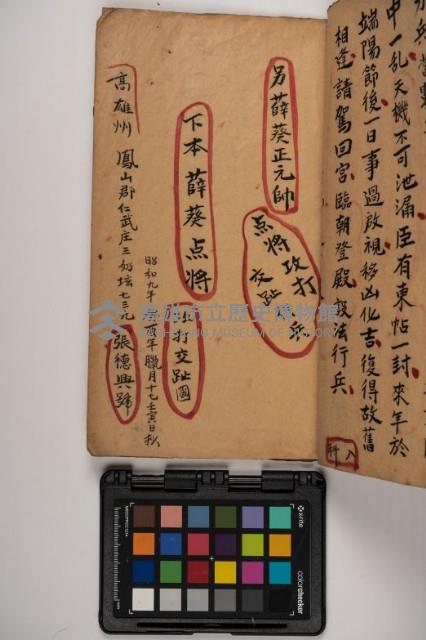 中一乱天機不可泄漏臣有東帖一封來年於
端陽節後一日事過啟視移凶化吉復得故舊
相逢請駕回宮臨朝登殿投法行兵
入科
另薛葵正元帥
点將攻打
交趾兵
下本薛葵点將
攻打交趾國
昭和九年 酉年臘月十七壬寅日
高雄州 鳳山郡仁武庄三奶坛七三九
張德興號
高雄市立歷史博物館
KAOHSIUNG MUSEUM OF HISTORY
x-rite
colorchecker